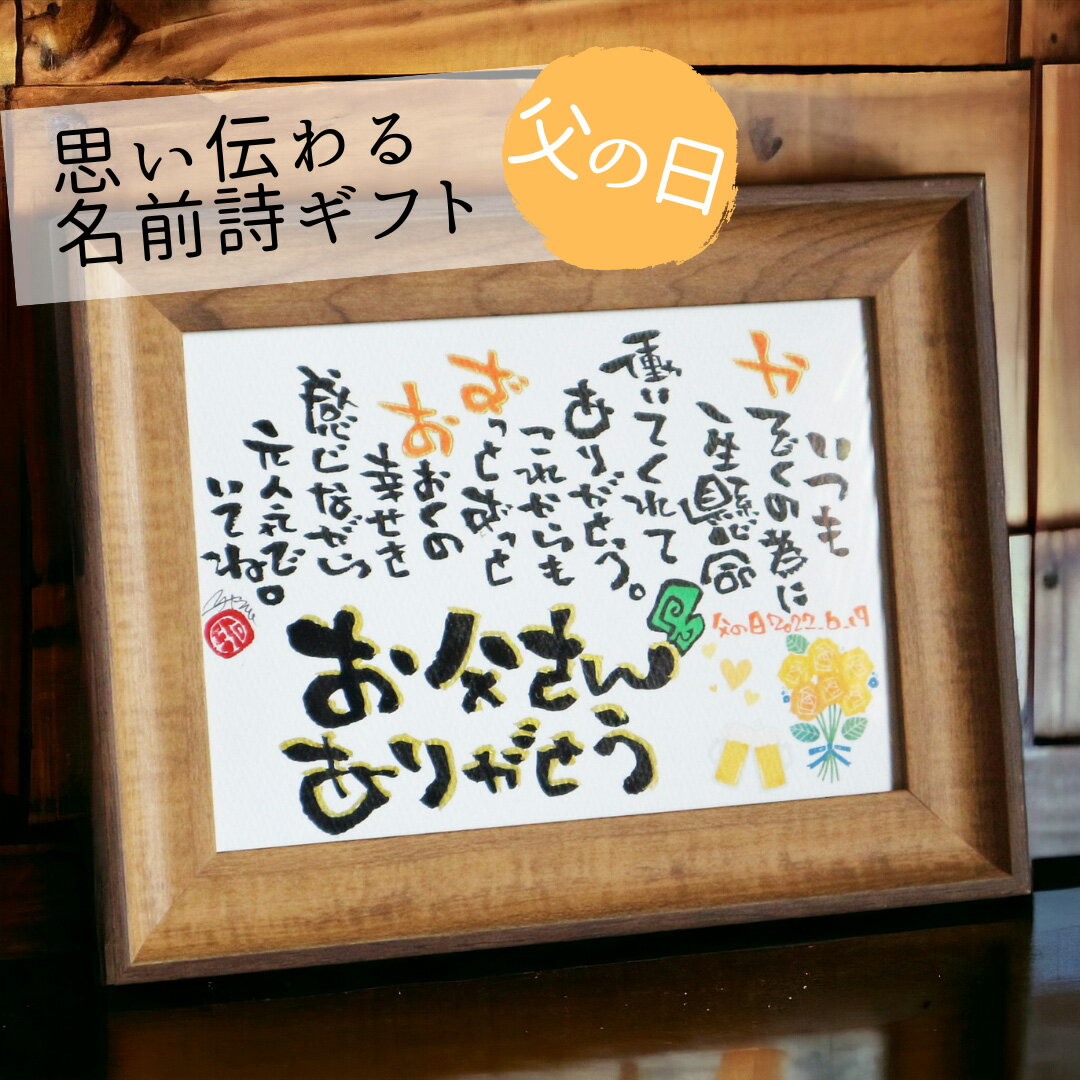 思い伝わる
名前詩ギフト
父の日
いつも
かぞくの為に
一生懸命
働いてくれて
ありがとう。
これからも
ずっとずっと
おおくの
幸せを
感じながら
元気で
いてね。
お父さん
ありがとう
父の日2022_6_19